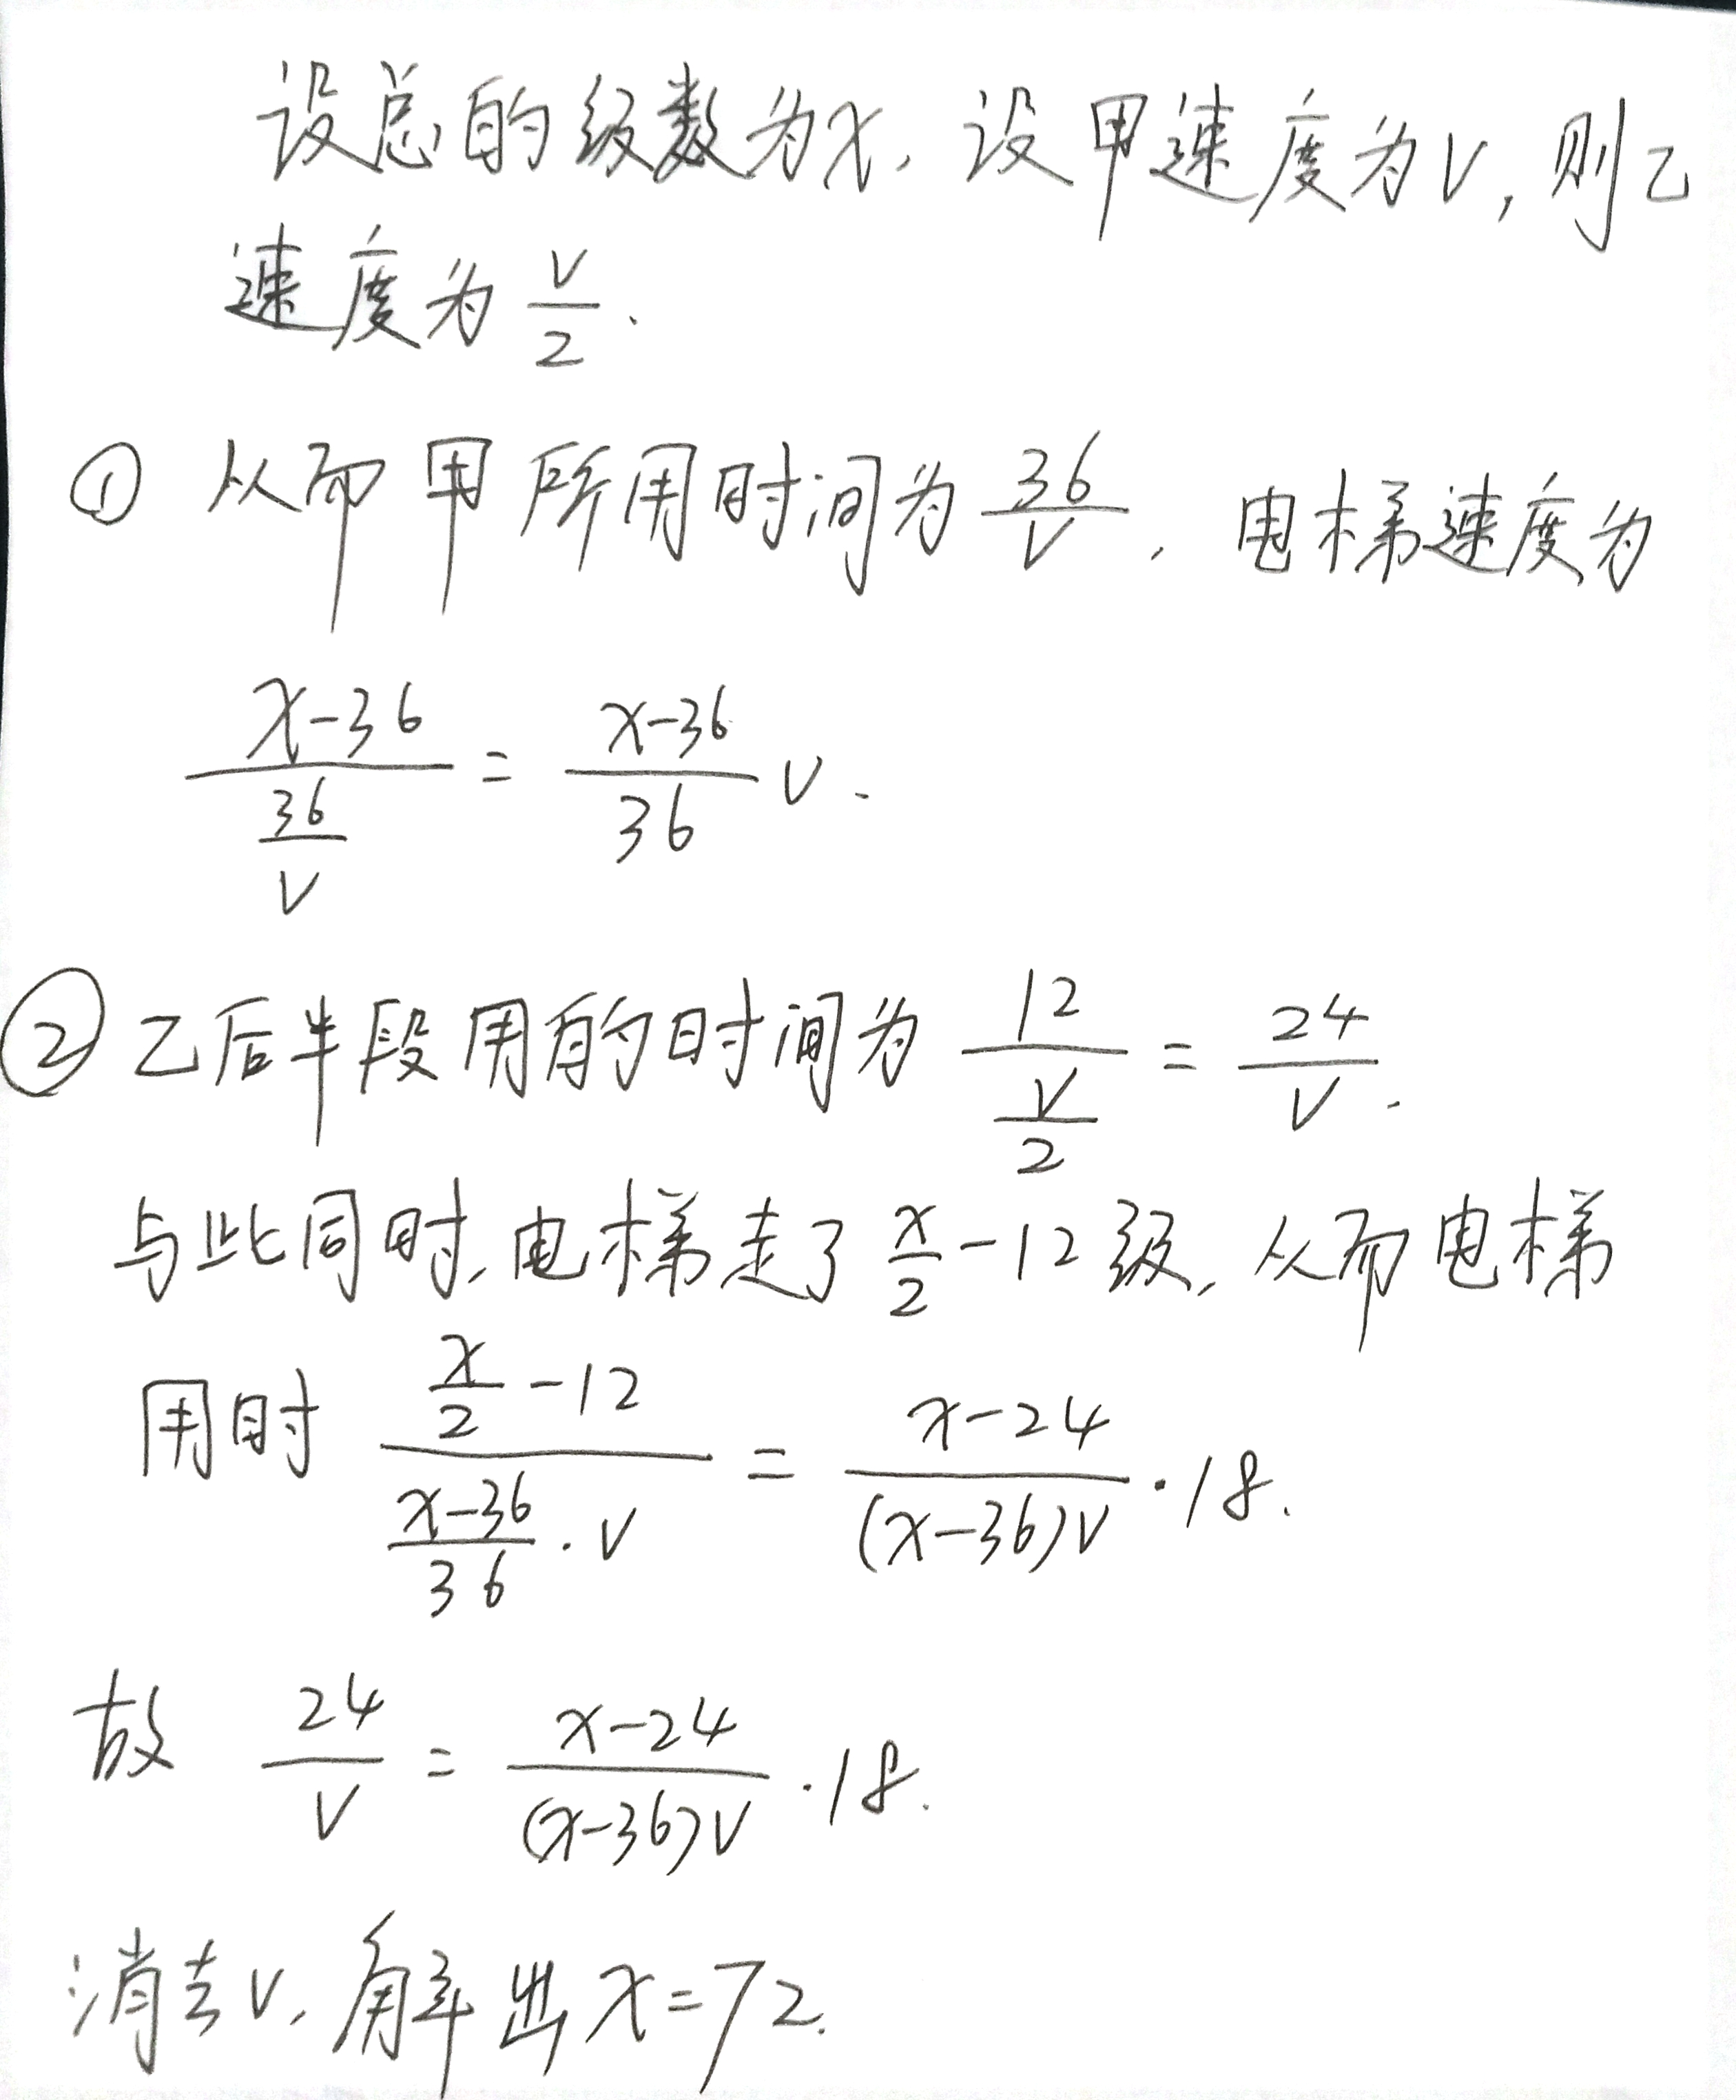 设总的级数为x, 设甲速度为v, 则乙
速度为 \frac{v}{2}.
① 从而甲所用时间为 \frac{36}{v}, 电梯速度为
\frac{x-36}{\frac{36}{v}} = \frac{x-36}{36} v.
② 乙后半段用的时间为 \frac{12}{\frac{v}{2}} = \frac{24}{v}.
与此同时, 电梯走了 \frac{x}{2}-12 级, 从而电梯
用时 \frac{\frac{x}{2}-12}{\frac{x-36}{36} \cdot v} = \frac{x-24}{(x-36)v} \cdot 18.
故 \frac{24}{v} = \frac{x-24}{(x-36)v} \cdot 18.
消去v, 解出 x=72.